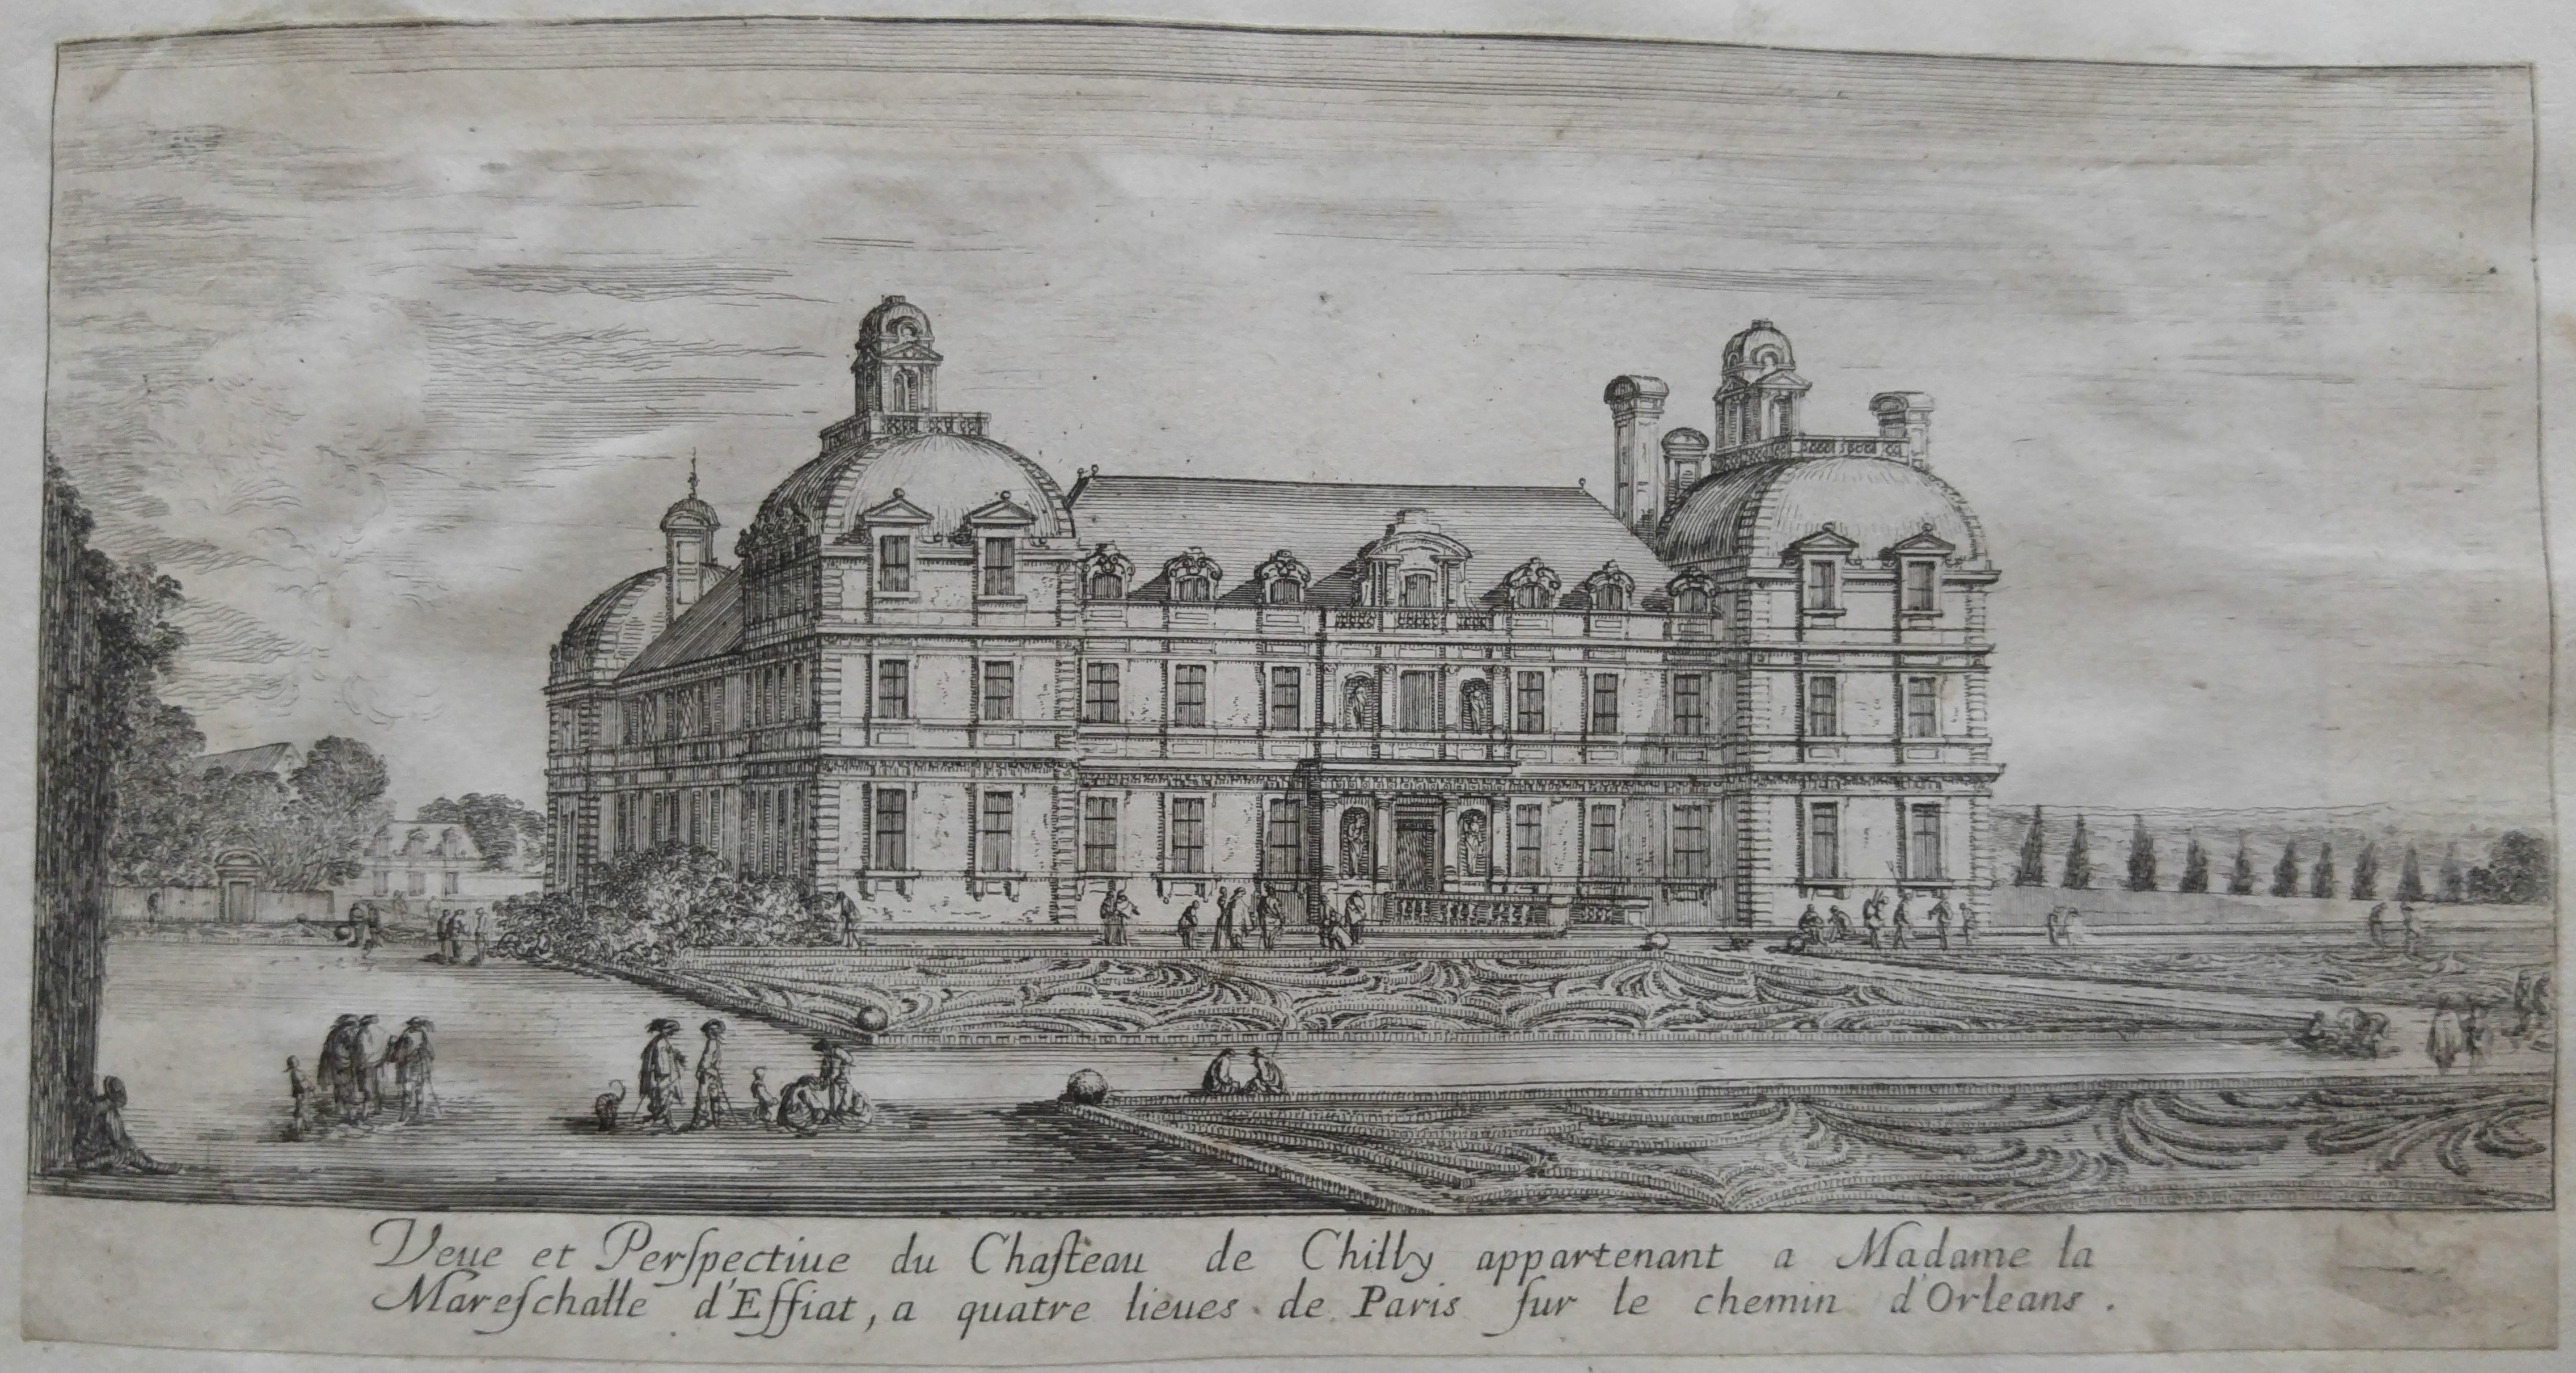 Veue et Perſpectiue du Chaſteau de Chilly appartenant a Madame la
Mareſchalle d'Effiat, a quatre lieues de Paris ſur le chemin d'Orleans.